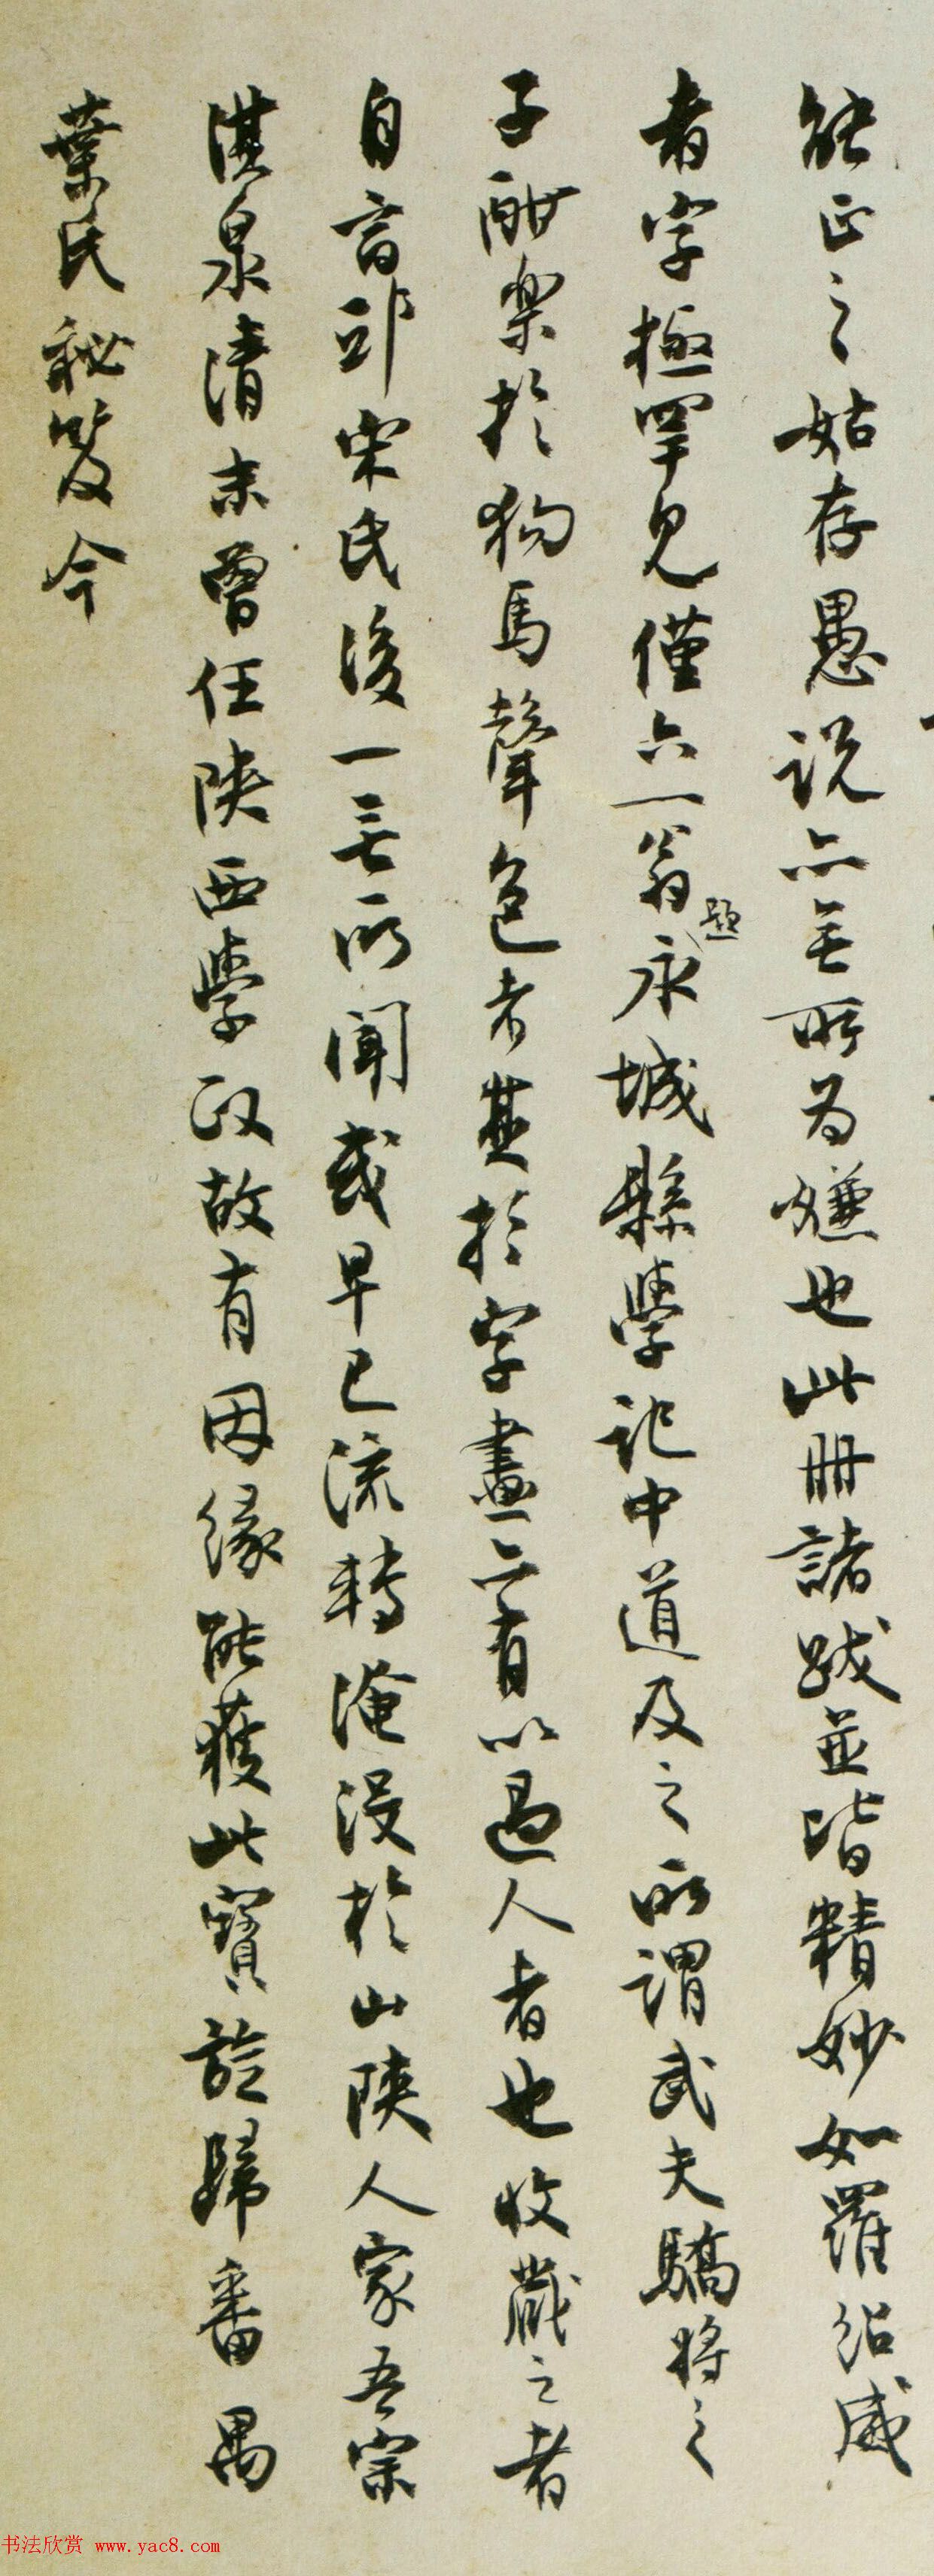 能正之姑存愚说亦无所为嫌也此册諸跋並皆精妙如羅紹威
者字極罕見僅六一翁題永城縣學記中道及之所謂武夫驕将之
子酣樂於狗馬聲色者其於字畫亦有以過人者也收藏之者
自言邱宋氏後一无所聞或早已流轉淹没於山陝人家吾宗
淇泉清末曾任陝西學政故有因緣能獲此寶詒歸番禺
葉氏秘笈今
书法欣赏 www.yac8.com